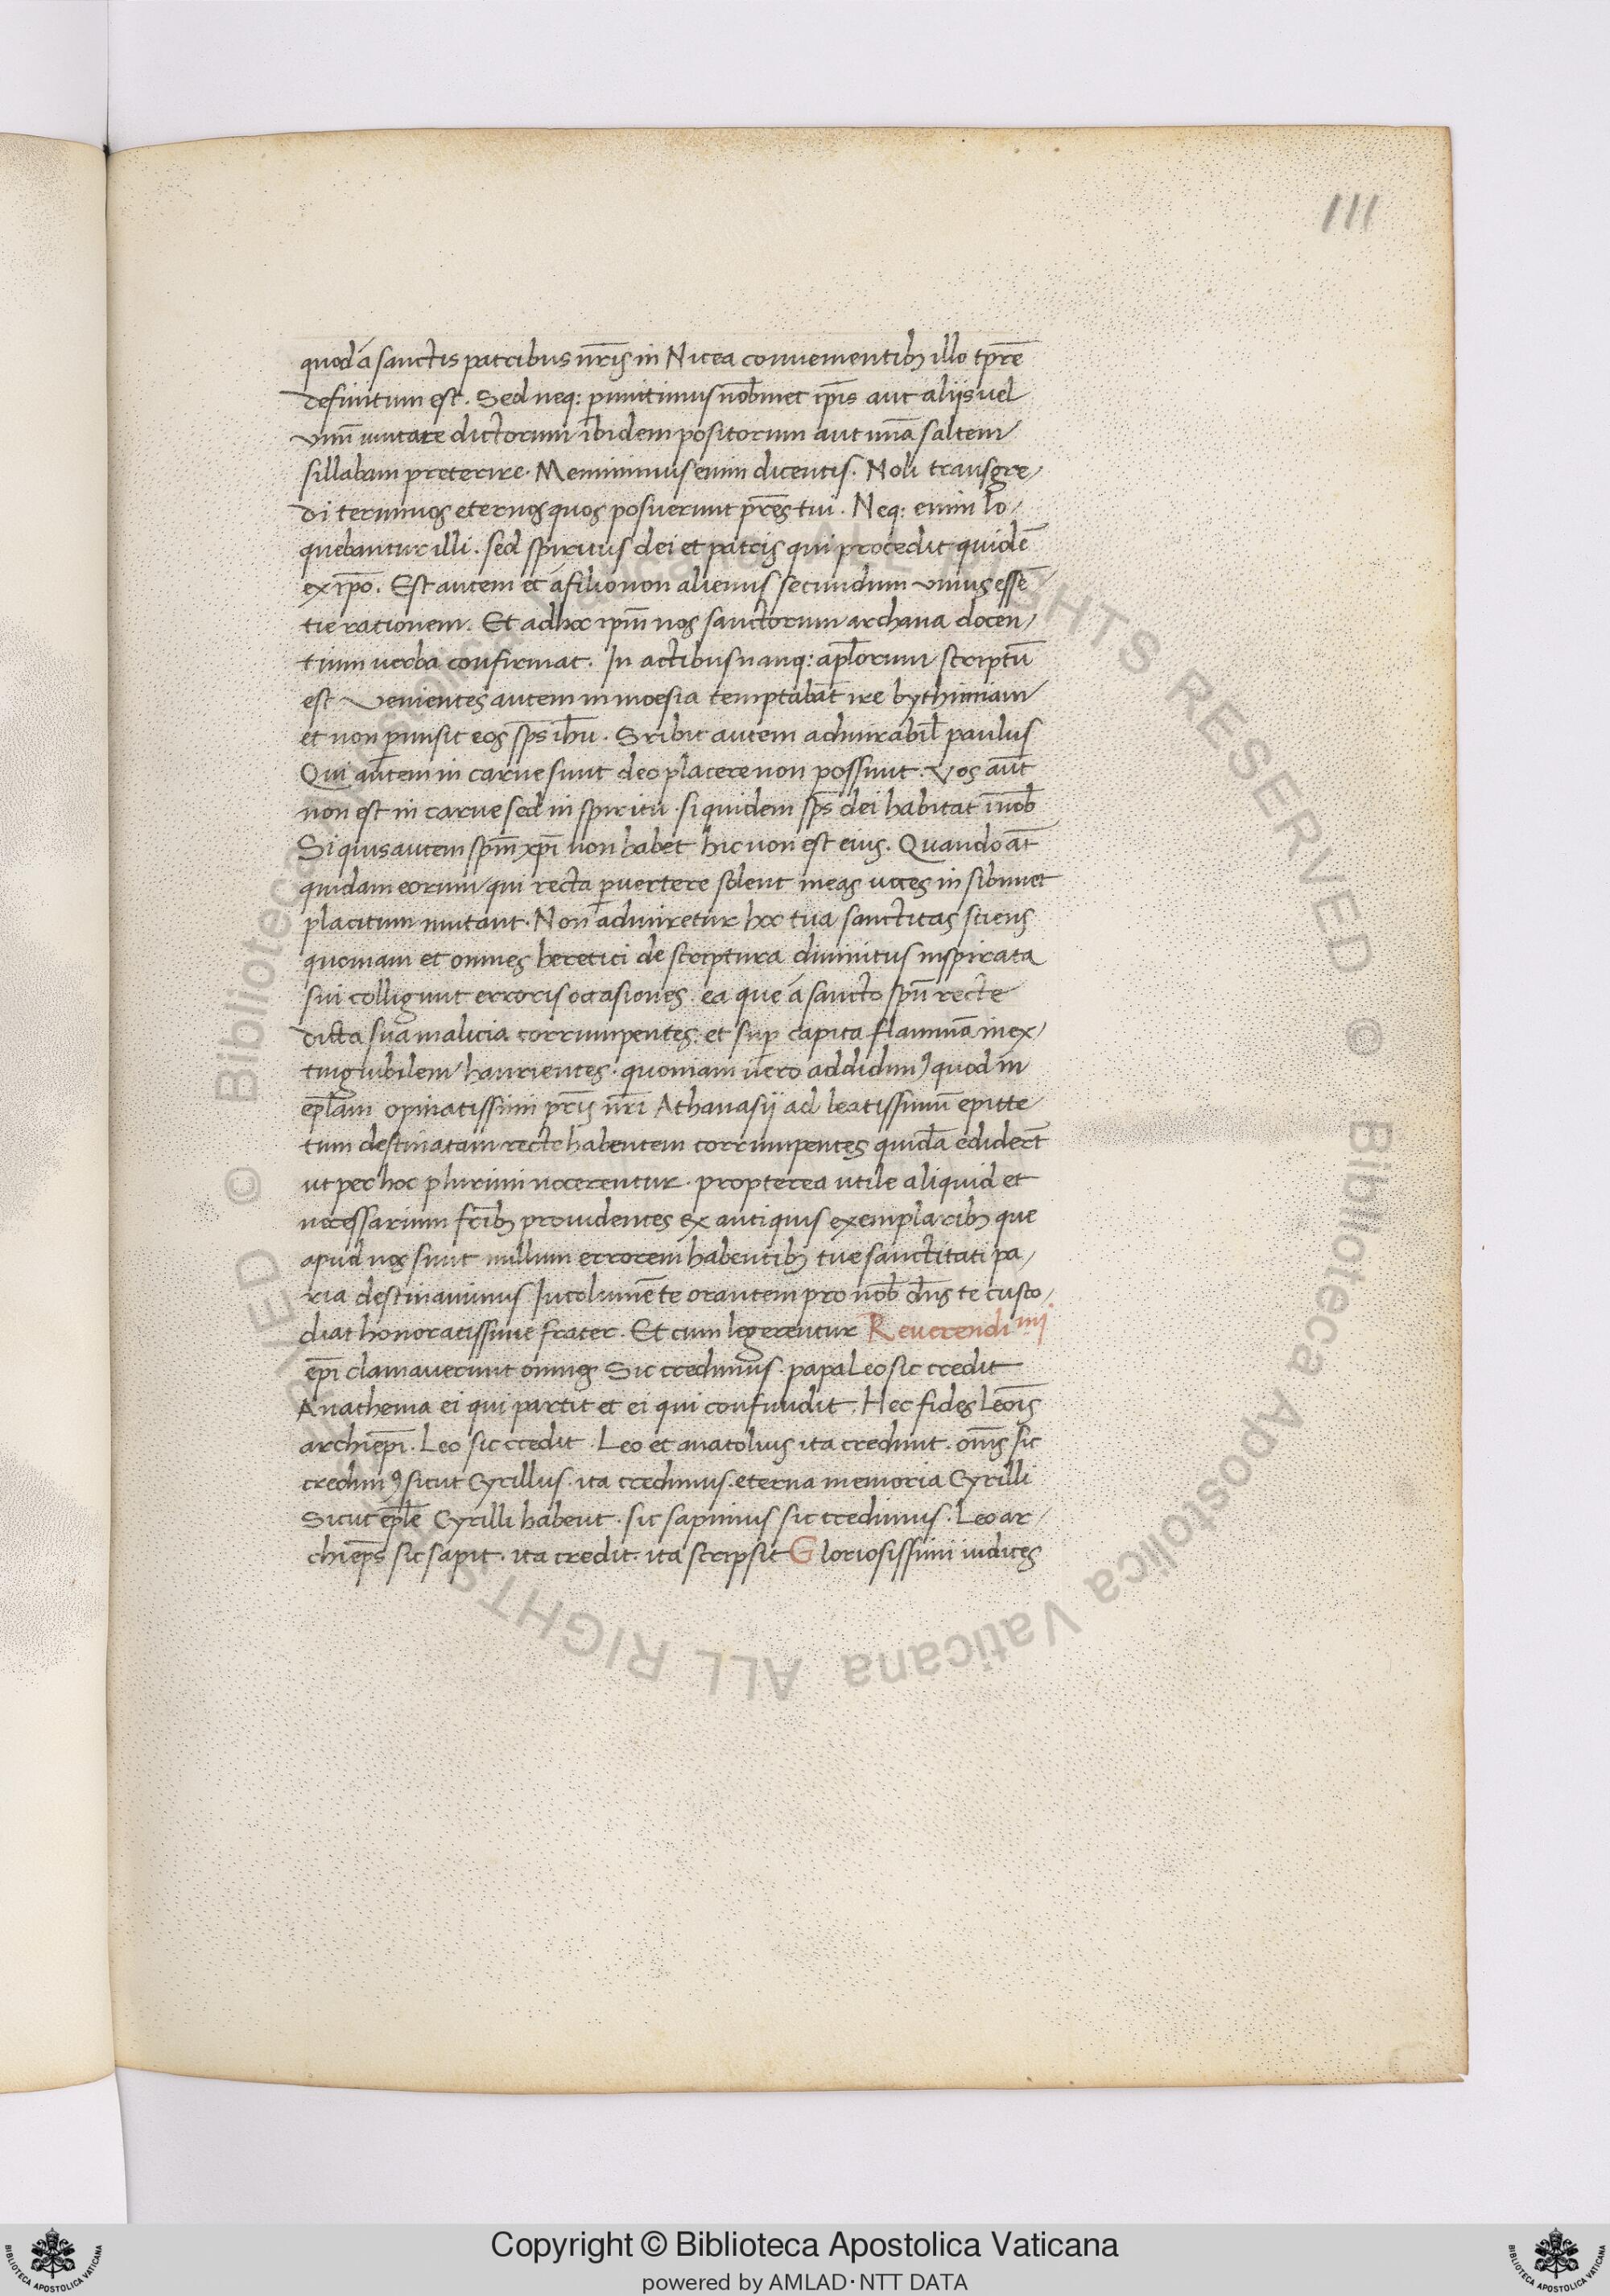 111
quod á sanctis patribus nr̄is in Nicea convenientib; illo tpr̄e
definitum est. Sed neq: p̱mittimus nob̄met ip̄is aut aliis vel
vnū mutare dictorum ibidem positorum aut unā saltem
sillabam preterire. Meminimus enim dicentis. Noli transgre/
di terminos eternos quos posuerunt pr̄es tui. Neq: enim lo/
quebantur illi. sed spiritus dei et patris qui procedit quidē
ex ip̄o. Est autem et á filio non alienus secundum vnius essē
tie rationem. Et ad hoc ip̄m nos sanctorum archana docen/
tium verba confirmat. In actibus nanq: apl̄orum scriptū
est Venientes autem in moesia temptabāt ire bythiniam
et non p̱misit eos sp̄s ih̄u. Sribit autem admirabil̄ paulus
Qui aūtem in carne sunt deo placere non possunt. Vos aūt
non est in carne sed in spiritu. siquidem sp̄s dei habitat inob̄
Si quis autem sp̄m xp̄i non habet hic non est eius. Quando āt
quidam eorum qui recta p̱vertere solent meas voces in sibimet
placitum mutant. Non admiretur hoc tua sanctitas sciens
quoniam et omnes heretici de scriptura divinitus inspirata
sui colligunt erroris occasiones. ea que á sancto spū recte
dicta sua malicia corrumpentes. et sup̱ capita flammā inex/
tinguibilem haurientes. quoniam vero addidim9 quod in
epl̄am opinatissimi pr̄is nr̄i Athanasii ad beatissimū epitte
tum destinatam recte habentem corrumpentes quidā ediderт̄
ut per hoc plurimi nocerentur. propterea utile aliquid et
necessarium fr̄ib; providentes ex antiquis exemplarib; que
apud nos sunt nullum errorem habentib; tue sanctitati pa/
ria destinavimus Incolumē te orantem pro nob̄ dn̄s te custo/
diat honoratissime frater. Et cum legerentur Reverendi mi
ep̄i clamaverunt omnes. Sic credimus. papa Leo sic credit
Anathema ei qui partit et ei qui confundit. Hec fides leōis
archiep̄i. Leo sic credit. Leo et anatolius ita credunt. om̄s sic
credim9 sicut Cyrillus. ita credimus. eterna memoria Cyrilli
Sicut epl̄e Cyrilli habent. sic sapimus sic credimus. Leo ar/
chiep̄s sic sapit. ita credit. ita scripsit Gloriosissimi iudices
© Biblioteca Apostolica Vaticana ALL RIGHTS RESERVED © Biblioteca Apostolica Vaticana ALL RIGHTS RESERVED
Copyright © Biblioteca Apostolica Vaticana
powered by AMLAD·NTT DATA
BIBLIOTECA APOSTOLICA VATICANA
BIBLIOTECA APOSTOLICA VATICANA